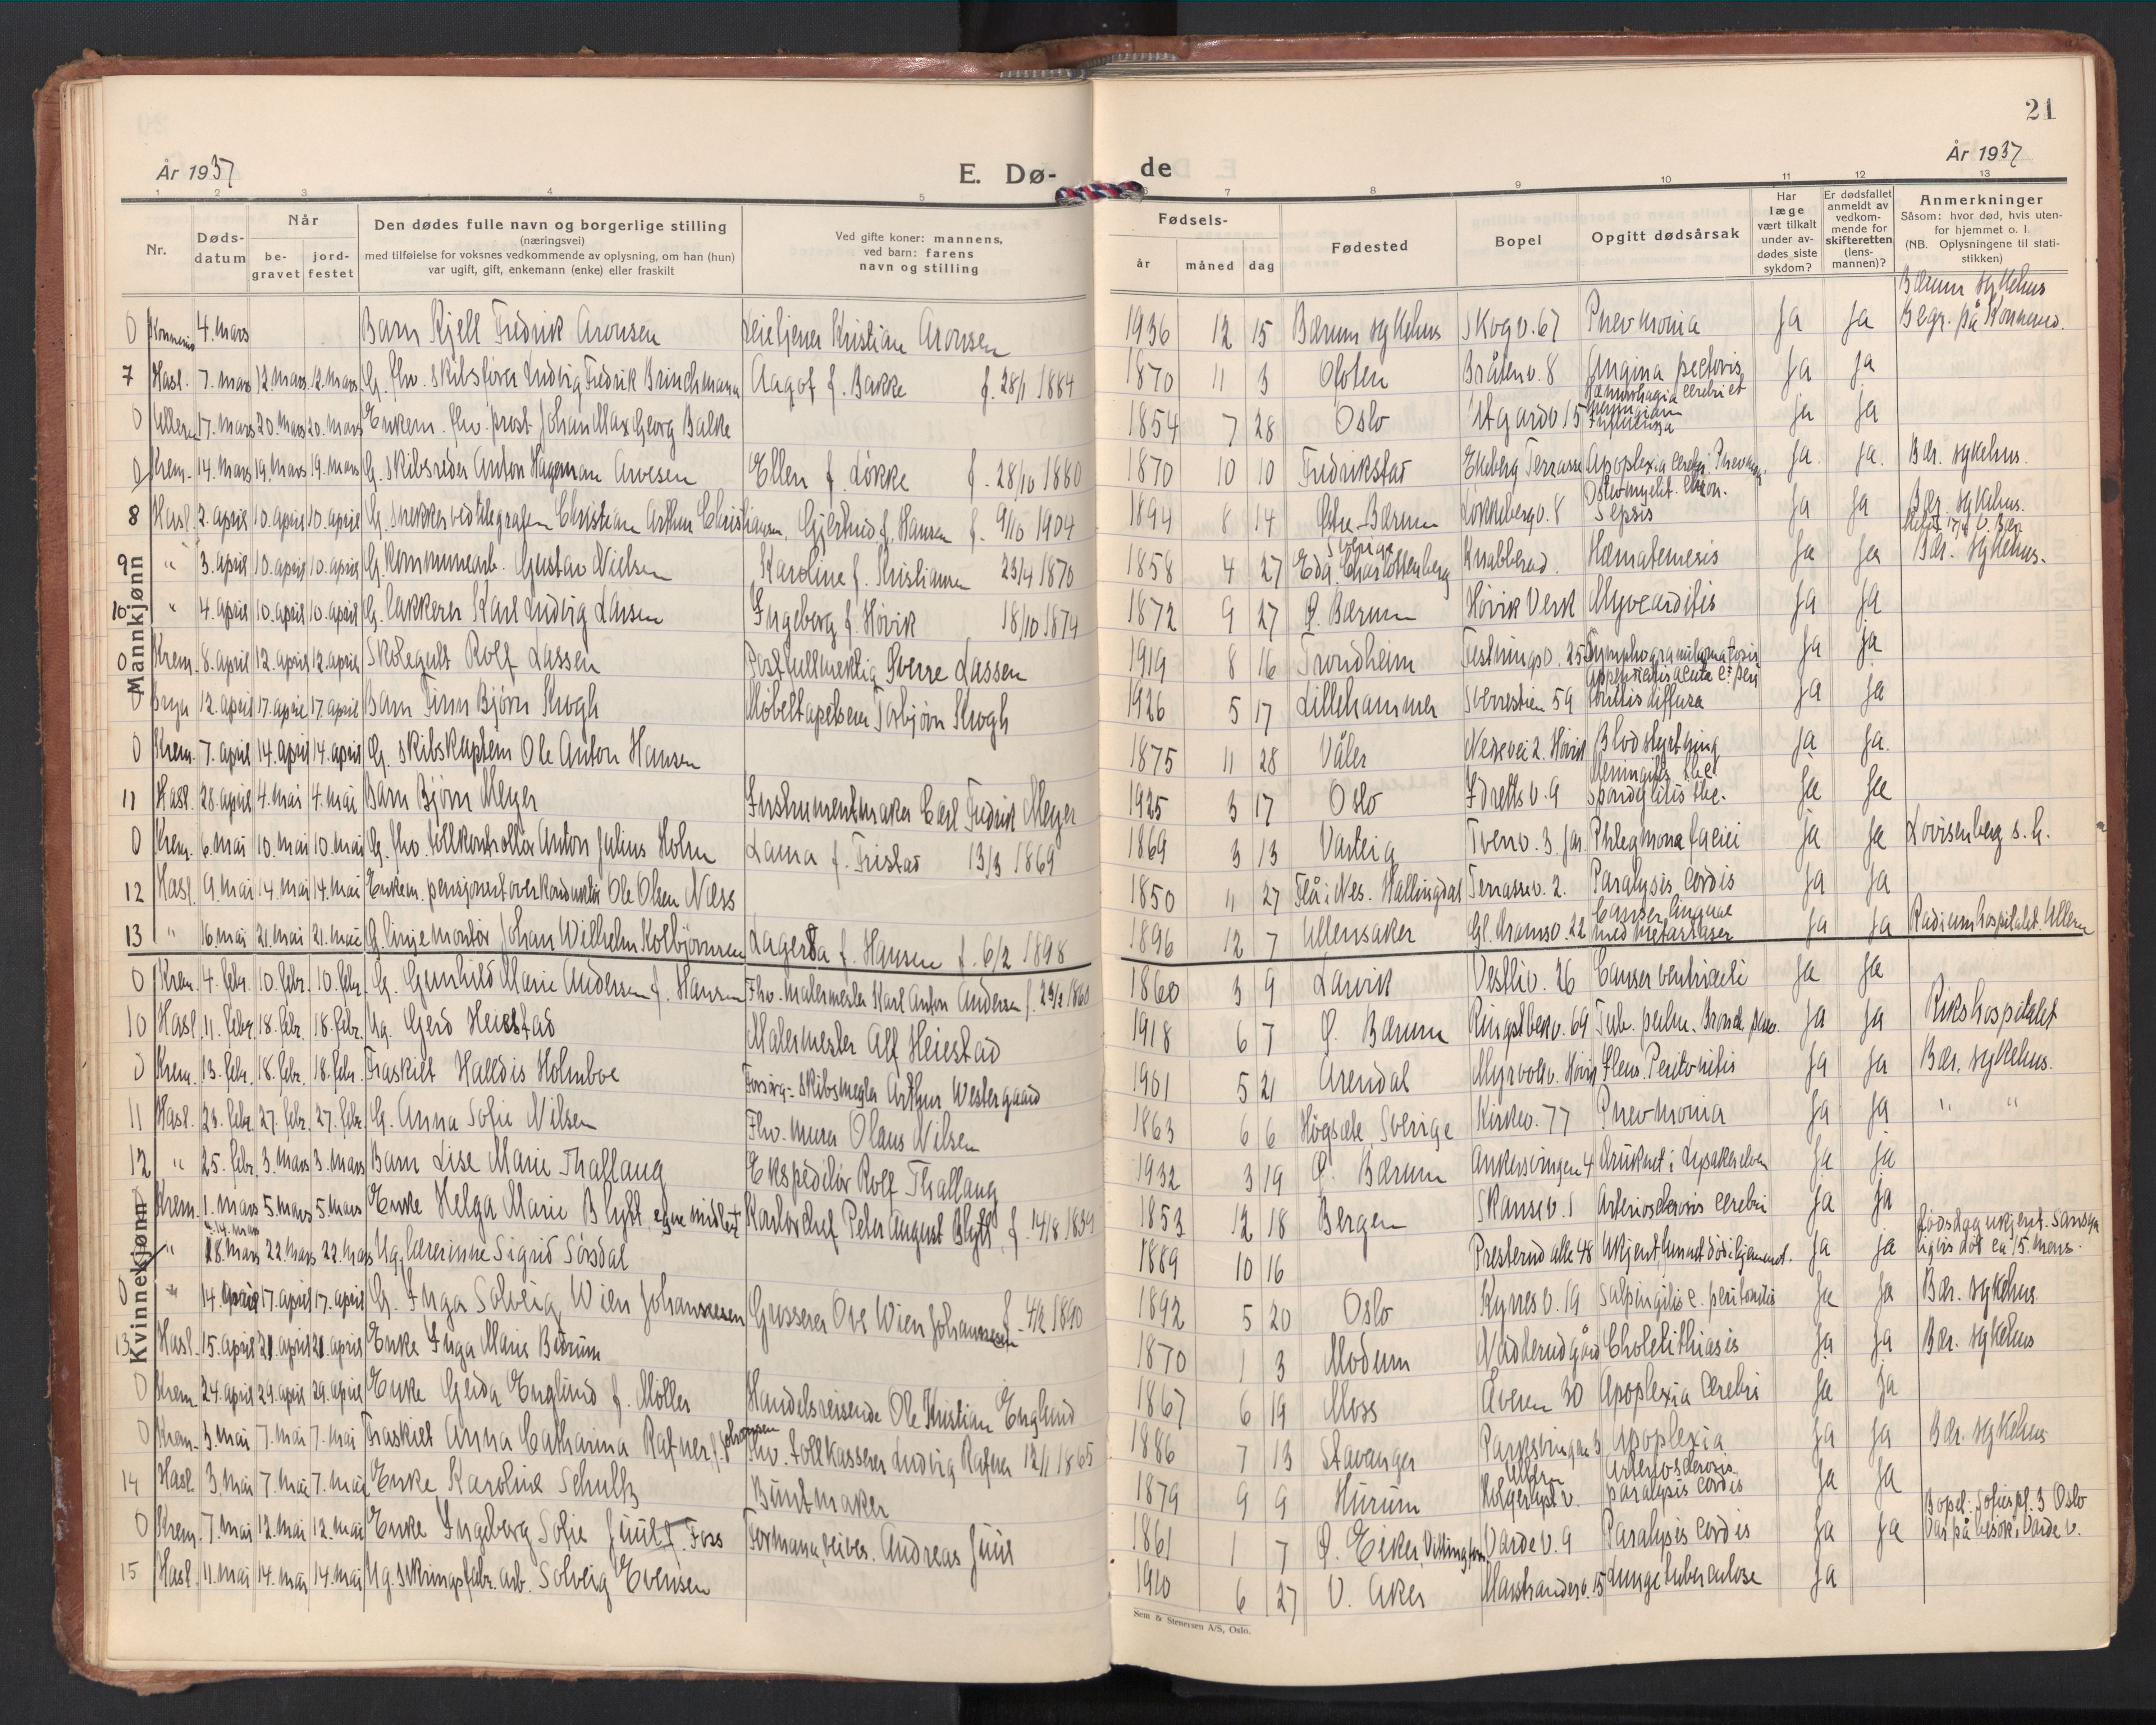 21
År 1937
E. Dø-
de
År 1937
1 2 3 4 5 6 7 8 9 10 11 12 13
Nr.
Døds-
datum
Når
be-
gravet
jord-
festet
Den dødes fulle navn og borgerlige stilling
(næringsvei)
med tilføielse for voksnes vedkommende av oplysning, om han (hun)
var ugift, gift, enkemann (enke) eller fraskilt
Ved gifte koner: mannens,
ved barn: farens
navn og stilling
Fødsels-
år måned dag
Fødested
Bopel
Opgitt dødsårsak
Har
læge
vært tilkalt
under av-
dødes siste
sykdom?
Er dødsfallet
anmeldt av
vedkom-
mende for
skifteretten
(lens-
mannen)?
Anmerkninger
Såsom: hvor død, hvis uten-
for hjemmet o. l.
(NB. Oplysningene til stati-
stikken)
Mannkjønn
0 4. mars Barn Kjell Fredrik Aronsen Kristian Aronsen 1936 12 15 Bærum sykehus Skogv. 67 Pnevmonia Ja Ja Bærum sykehus
Begr. på
7 Hasl. 7. mars 12. mars 12. mars G. fhv. skibsfører Ludvig Fredrik Brinchmann Aagot f. Bakke f. 28/1 1884 1870 11 3 Bråtenv. 8 Angina pectoris Ja Ja
0 Ullern 17. mars 20. mars 20. mars Enkem. fhv. prost Johan Max Georg Balke 1854 7 28 Oslo Utgardv 15 Hæmorrhagia cerebri et
Influensa Ja Ja
0 Krem. 14. mars 19. mars 19. mars G. skibsreder Anton Hageman Arvesen Ellen f. Løkke f. 28/10 1880 1870 10 10 Fredrikstad Ekeberg Terrasse Apoplexia cerebri Ja. Ja. Bær. sykehus.
8 Hasl. 2. april 10. april 10. april G. snekker ved telegrafen Christian Arthur Christiansen, Gjertrud f. Hansen f. 9/10 1904 1894 8 14 Østre-Bærum Løkkebergv. 8 Osteomyelit. chron.
Sepsis Ja Ja Bær. sykehus.
9 " 3. april 10. april 10. april G. kommunearb. Gustav Nielsen Karoline f. Kristiansen 23/4 1870 1858 4 27 Eda, Charlottenberg Sverige Knabberud. Hæmatemesis Ja Ja Bær. sykehus.
10 " 4. april 10. april 10. april G. lakkerer Karl Ludvig Larsen Ingeborg f. Høvik 18/10 1874 1872 9 27 Ø. Bærum Høvik Verk Myocarditis Ja Ja
0 Krem. 8. april 12. april 12. april Skolegutt Rolf Lassen Postfullmektig Sverre Lassen 1919 8 16 Trondheim Festningsv. 25 Lymphogranulomatosis Ja Ja
0 Bryn 12. april 17. april 17. april Barn Finn Bjørn Skogh Møbeltapetserer Torbjørn Skogh 1926 5 17 Lillehammer Sverrestien 59 Appendicitis acuta c. peri
tonitis diffusa Ja Ja
0 Krem. 7. april 14. april 14. april G. skibskaptein Ole Anton Hansen 1875 11 28 Våler Nedrevei 2. Høvik Blodstyrtning Ja Ja.
11 Hasl. 28. april 4. mai 4. mai Barn Bjørn Meyer Instrumentmaker Carl Fredrik Meyer 1925 3 17 Oslo Idrettsv. 9 Meningitis tbc.
Spondylitis tbc. Ja Ja
0 Krem. 6. mai 10. mai 10. mai G. fhv. tollkontrollør Anton Julius Holm Laura f. Fristad 13/3 1869 1869 3 13 Varteig Tvenv. 3. Jar. Phlegmona faciei Ja Ja Lovisenberg s. h.
12 Hasl. 9. mai 14. mai 14. mai Enkem. pensjonert overkonduktør Ole Olsen Næss 1850 11 27 Flå i Nes. Hallingdal Terrassev. 2. Paralysis cordis Ja Ja
13 " 16. mai 21. mai 21. mai G. linjemontør Johan Wilhelm Kolbjørnsen Lagerta f. Hansen f. 6/2 1898 1896 12 7 Ullensaker Gl. Dramsv. 22 Cancer linguae
med metastaser Ja Ja Radiumhospitalet. Ullern
Kvinnekjønn
0 Krem. 4. febr. 10. febr. 10. febr. G. Gunhild Marie Andersen f. Hansen Fhv. malermester Karl Anton Andersen f. 23/2 1860 1860 3 9 Larvik Vestliv. 26 Cancer ventriculi Ja Ja
10 Hasl. 11. febr. 18. febr. 18. febr. Ug. Gerd Heiestad Malermester Alf Heiestad 1918 6 7 Ø. Bærum Ringstabekv. 69 Tub. pulm. Bronch. pnev. Ja Ja Rikshospitalet
0 Krem. 13. febr. 18. febr. 18. febr. Fraskilt Halldis Holmboe Skibsmegler Arthur Westergaard 1901 5 21 Arendal Myrvollv. Høvik Ileus. Peritonitis Ja Ja Bær. sykehus.
11 Hasl. 23. febr. 27. febr. 27. febr. G. Anna Sofie Nilsen Fhv. murer Olaus Nilsen 1863 6 6 Högsäte, Sverige Kirkev. 77 Pnevmonia Ja Ja " "
12 " 25. febr. 3. mars 3. mars Barn Lise Marie Thallaug Ekspeditør Rolf Thallaug 1932 3 19 Ø. Bærum Ankersvingen 4 Druknet i Lysakerelven Ja Ja
Krem. 1. mars 5. mars 5. mars Enke Helga Marie Blytt, egne midler Kontorchef Peter August Blytt, f. 14/8 1839 1853 12 18 Bergen Skansev. 1 Arteriosclerosis cerebri Ja Ja
" 18. mars 22. mars 22. mars Ug. lærerinne Sigrid Sørsdal 1889 10 16 Presterud alle 48 Ukjent, funnet død i hjemmet. Ja Ja Dødsdag ukjent. Sansyn
ligvis død ca 15. mars.
0 " 14. april 17. april 17. april G. Inga Solveig Wien Johannessen Grosserer Ove Wien Johannessen f. 4/2 1890 1892 5 20 Oslo Kynesv. 19 Salpingitis c. peritonitis Ja Ja Bær. sykehus
13 Hasl. 15. april 21. april 21. april Enke Inga Marie Bærum 1870 1 3 Modum Nadderud gård Cholelithiasis Ja Ja Bær. sykehus
0 Krem. 24. april 29. april 29. april Enke Gerda Englund f. Møller Handelsreisende Ole Kristian Englund 1867 6 19 Moss Åsveien 30 Apoplexia cerebri Ja Ja
0 Krem. 3. mai 7. mai 7. mai Fraskilt Anna Catharina Rafner f. Johansen Fhv. tollkasserer Ludvig Rafner 12/1 1865 1886 7 13 Stavanger Parksvingen 3 Apoplexia Ja Ja Bær. sykehus
14 Hasl. 3. mai 7. mai 7. mai Enke Karoline Schultz Buntmaker 1879 9 9 Hurum Holgerslyst v. Arteriosclerosis
paralysis cordis Ja Ja
0 Krem. 7. mai 12. mai 12. mai Enke Ingeborg Sofie Juul f. Foss Formann, veives. Andreas Juul 1861 1 7 Ø. Eiker Vardev. 9 Paralysis cordis Ja Ja Bopel: Sofiespl. 3 Oslo
Var på besøk i Varde v.
15 Hasl. 11. mai 14. mai 14. mai Ug. Solveig Evensen 1910 6 27 V. Aker Marstranderv. 15 Lungetuberculose Ja
Sem & Stenersen A/S, Oslo.